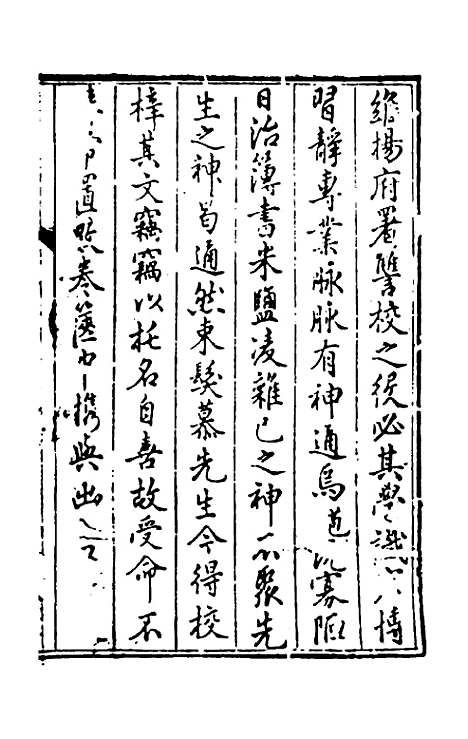 維揚府署讐校之役必其學識博
習静專業脉脉有神通焉道寡陋
日治簿書米鹽凌雜已之神不聚先
生之神曷通然束髮慕先生今得校
梓其文竊竊以托名自喜故受命不
置卷篋中携與出入